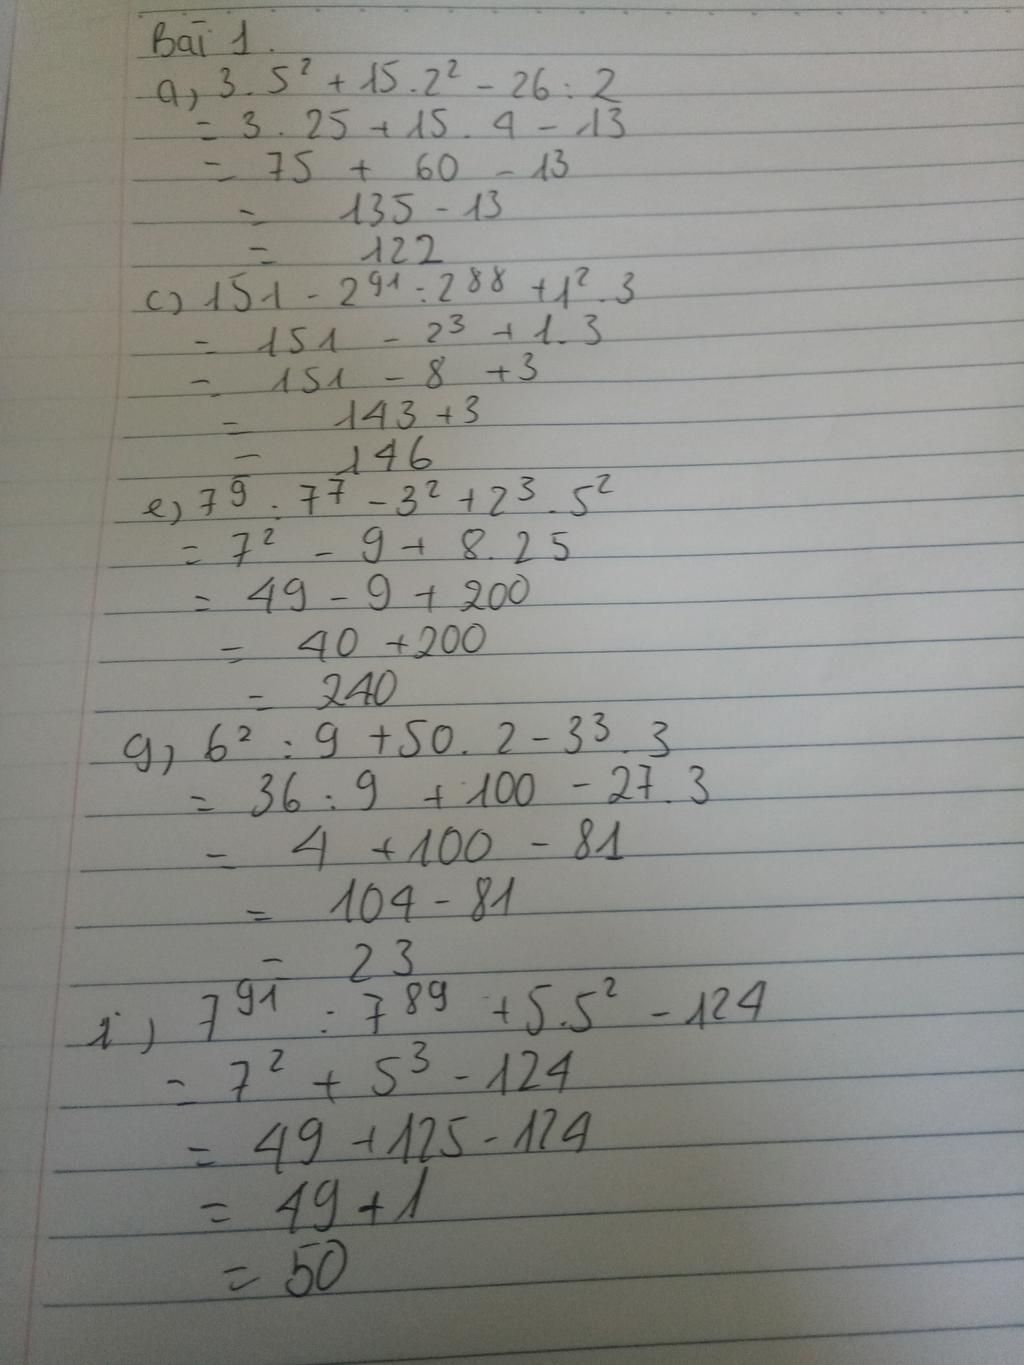 Bài 1.
a, 3.5² + 15.2² - 26 : 2
= 3 . 25 + 15 . 4 - 13
= 75 + 60 - 13
= 135 - 13
= 122
c) 151 - 2⁹¹ : 2⁸⁸ + 1² . 3
= 151 - 2³ + 1.3
= 151 - 8 + 3
= 143 + 3
= 146
e, 7⁹ : 7⁷ - 3² + 2³ . 5²
= 7² - 9 + 8.25
= 49 - 9 + 200
= 40 + 200
= 240
g, 6² : 9 + 50. 2 - 3³ . 3
= 36 : 9 + 100 - 27 . 3
= 4 + 100 - 81
= 104 - 81
= 23
i) 7⁹¹ : 7⁸⁹ + 5.5² - 124
= 7² + 5³ - 124
= 49 + 125 - 124
= 49 + 1
= 50